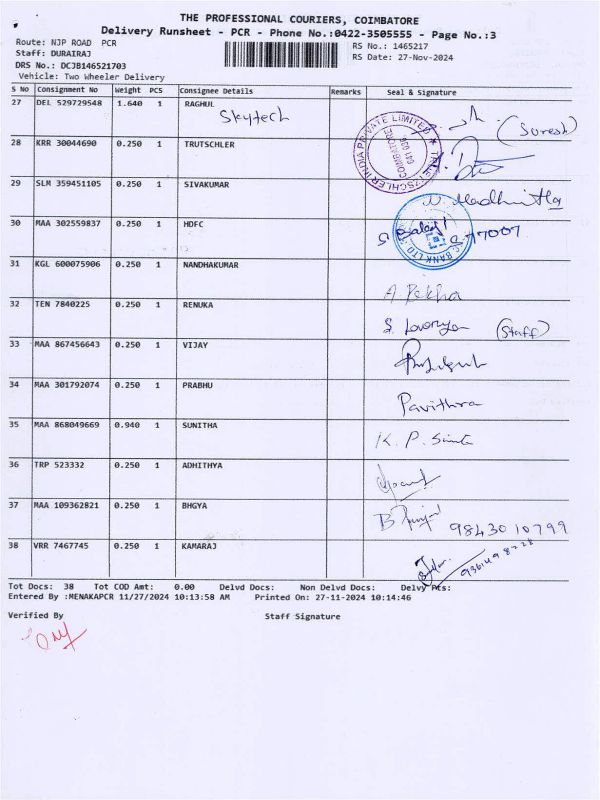 THE PROFESSIONAL COURIERS, COIMBATORE
Delivery Runsheet - PCR - Phone No.:0422-3505555 - Page No.:3
Route: NJP ROAD PCR
Staff: DURAIRAJ
DRS No.: DCJB146521703
Vehicle: Two Wheeler Delivery
RS No.: 1465217
RS Date: 27-Nov-2024
S No Consignment No Weight PCS Consignee Details Remarks Seal & Signature
27 DEL 529729548 1.640 1 RAGHUL
Skytech (Suresh)
28 KRR 30044690 0.250 1 TRUTSCHLER
INDIA PRIVATE LIMITED
COIMBATORE
29 SLM 359451105 0.250 1 SIVAKUMAR
30 MAA 302559837 0.250 1 HDFC
BANK LTD.
31 KGL 600075906 0.250 1 NANDHAKUMAR
A. Rekha
32 TEN 7840225 0.250 1 RENUKA
S. Lavanya (Staff)
33 MAA 867456643 0.250 1 VIJAY
34 MAA 301792074 0.250 1 PRABHU
Pavithra
35 MAA 868049669 0.940 1 SUNITHA
K. P.
36 TRP 523332 0.250 1 ADHITHYA
37 MAA 109362821 0.250 1 BHGYA
9843010799
38 VRR 7467745 0.250 1 KAMARAJ
Tot Docs: 38 Tot COD Amt: 0.00 Delvd Docs: Non Delvd Docs: Delvy Pts:
Entered By :MENAKAPCR 11/27/2024 10:13:58 AM Printed On: 27-11-2024 10:14:46
Verified By Staff Signature